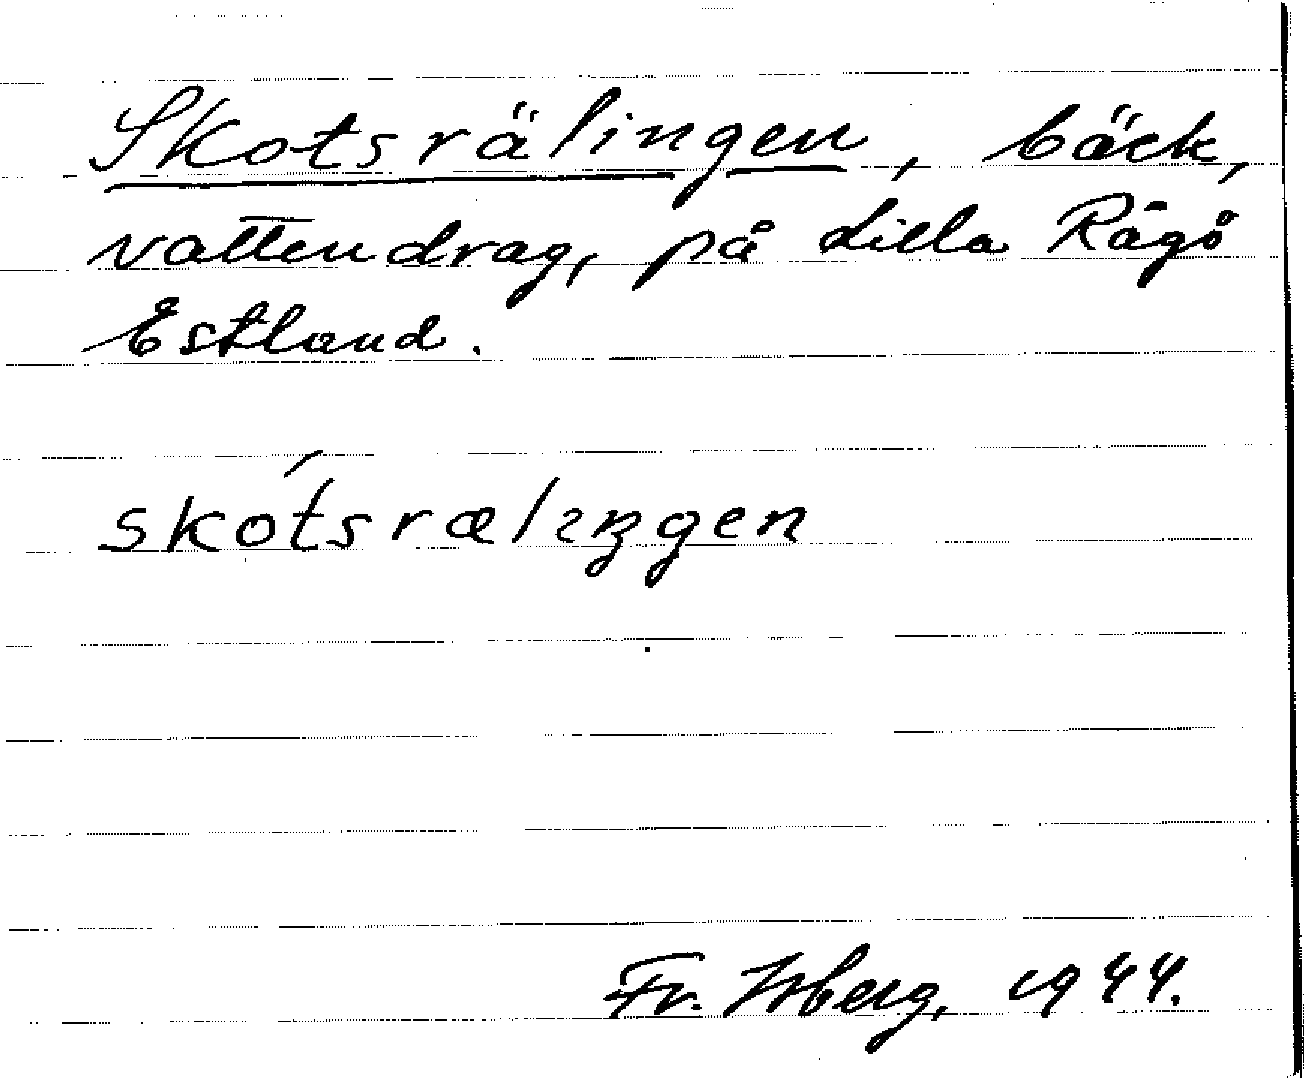 Skotsrälingen, bäck,
vattendrag, på Lilla Rågö
Estland.
skótsrælıŋgen
Fr. Isberg, 1944.